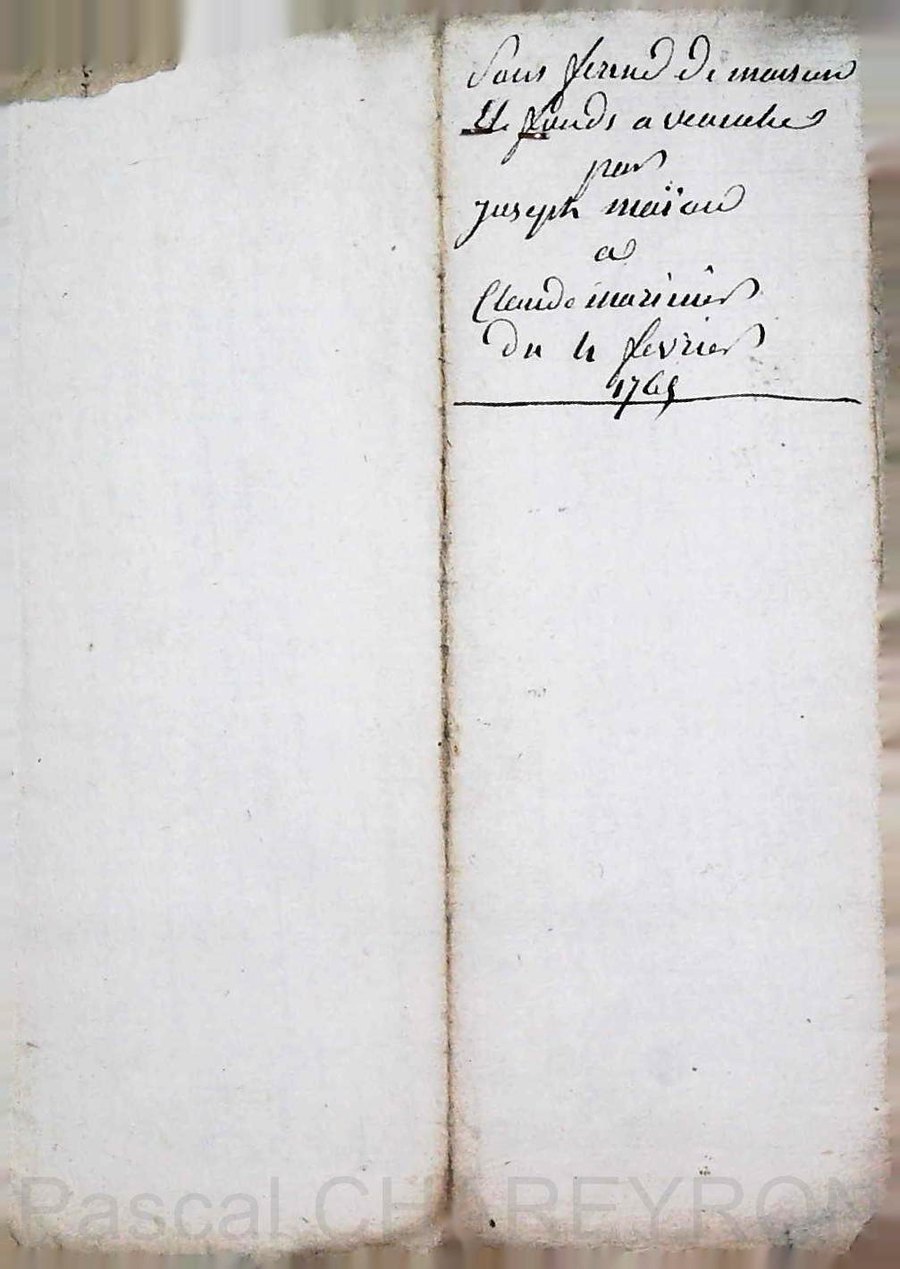 Sous ferme De maison
Et fonds a venuche
par
joseph maïou
a
Claude marinier
du 4 fevrier
1765
Pascal CHAREYRON